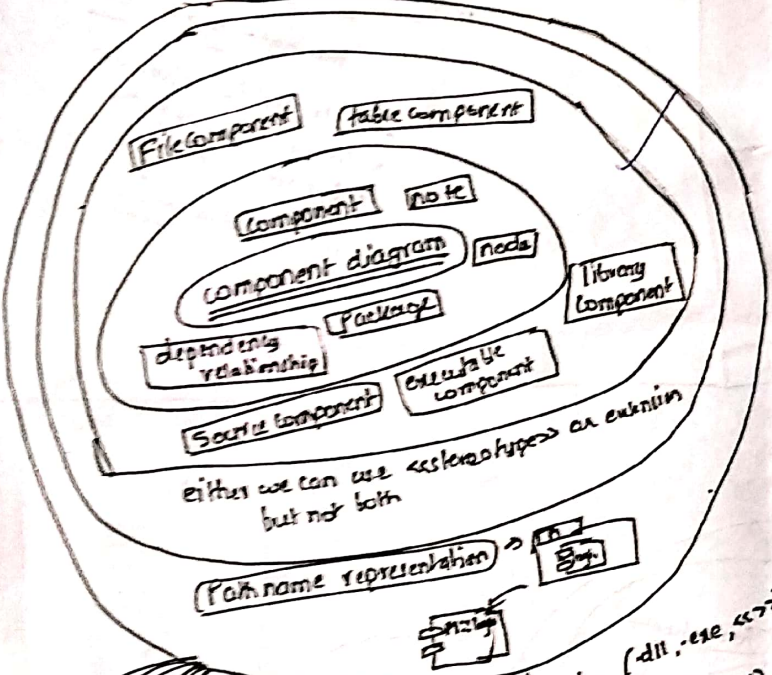 File component
table component
component
note
component diagram
node
library
component
Package
dependency
relationship
executable
component
Source component
either we can use <<stereotype>> or
but not both
Pathname representation
(.dll, .exe, <<>>